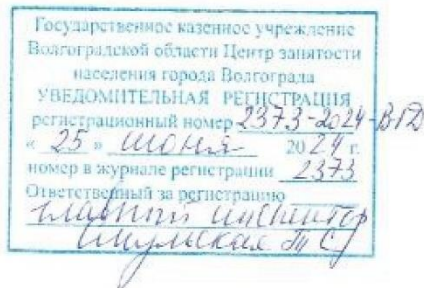 Государственное казенное учреждение
Волгоградской области Центр занятости
населения города Волгограда
УВЕДОМИТЕЛЬНАЯ РЕГИСТРАЦИЯ
регистрационный номер 2373-2024-ВГД
« 25 » июня 2024 г.
номер в журнале регистрации 2373
Ответственный за регистрацию
главный инспектор